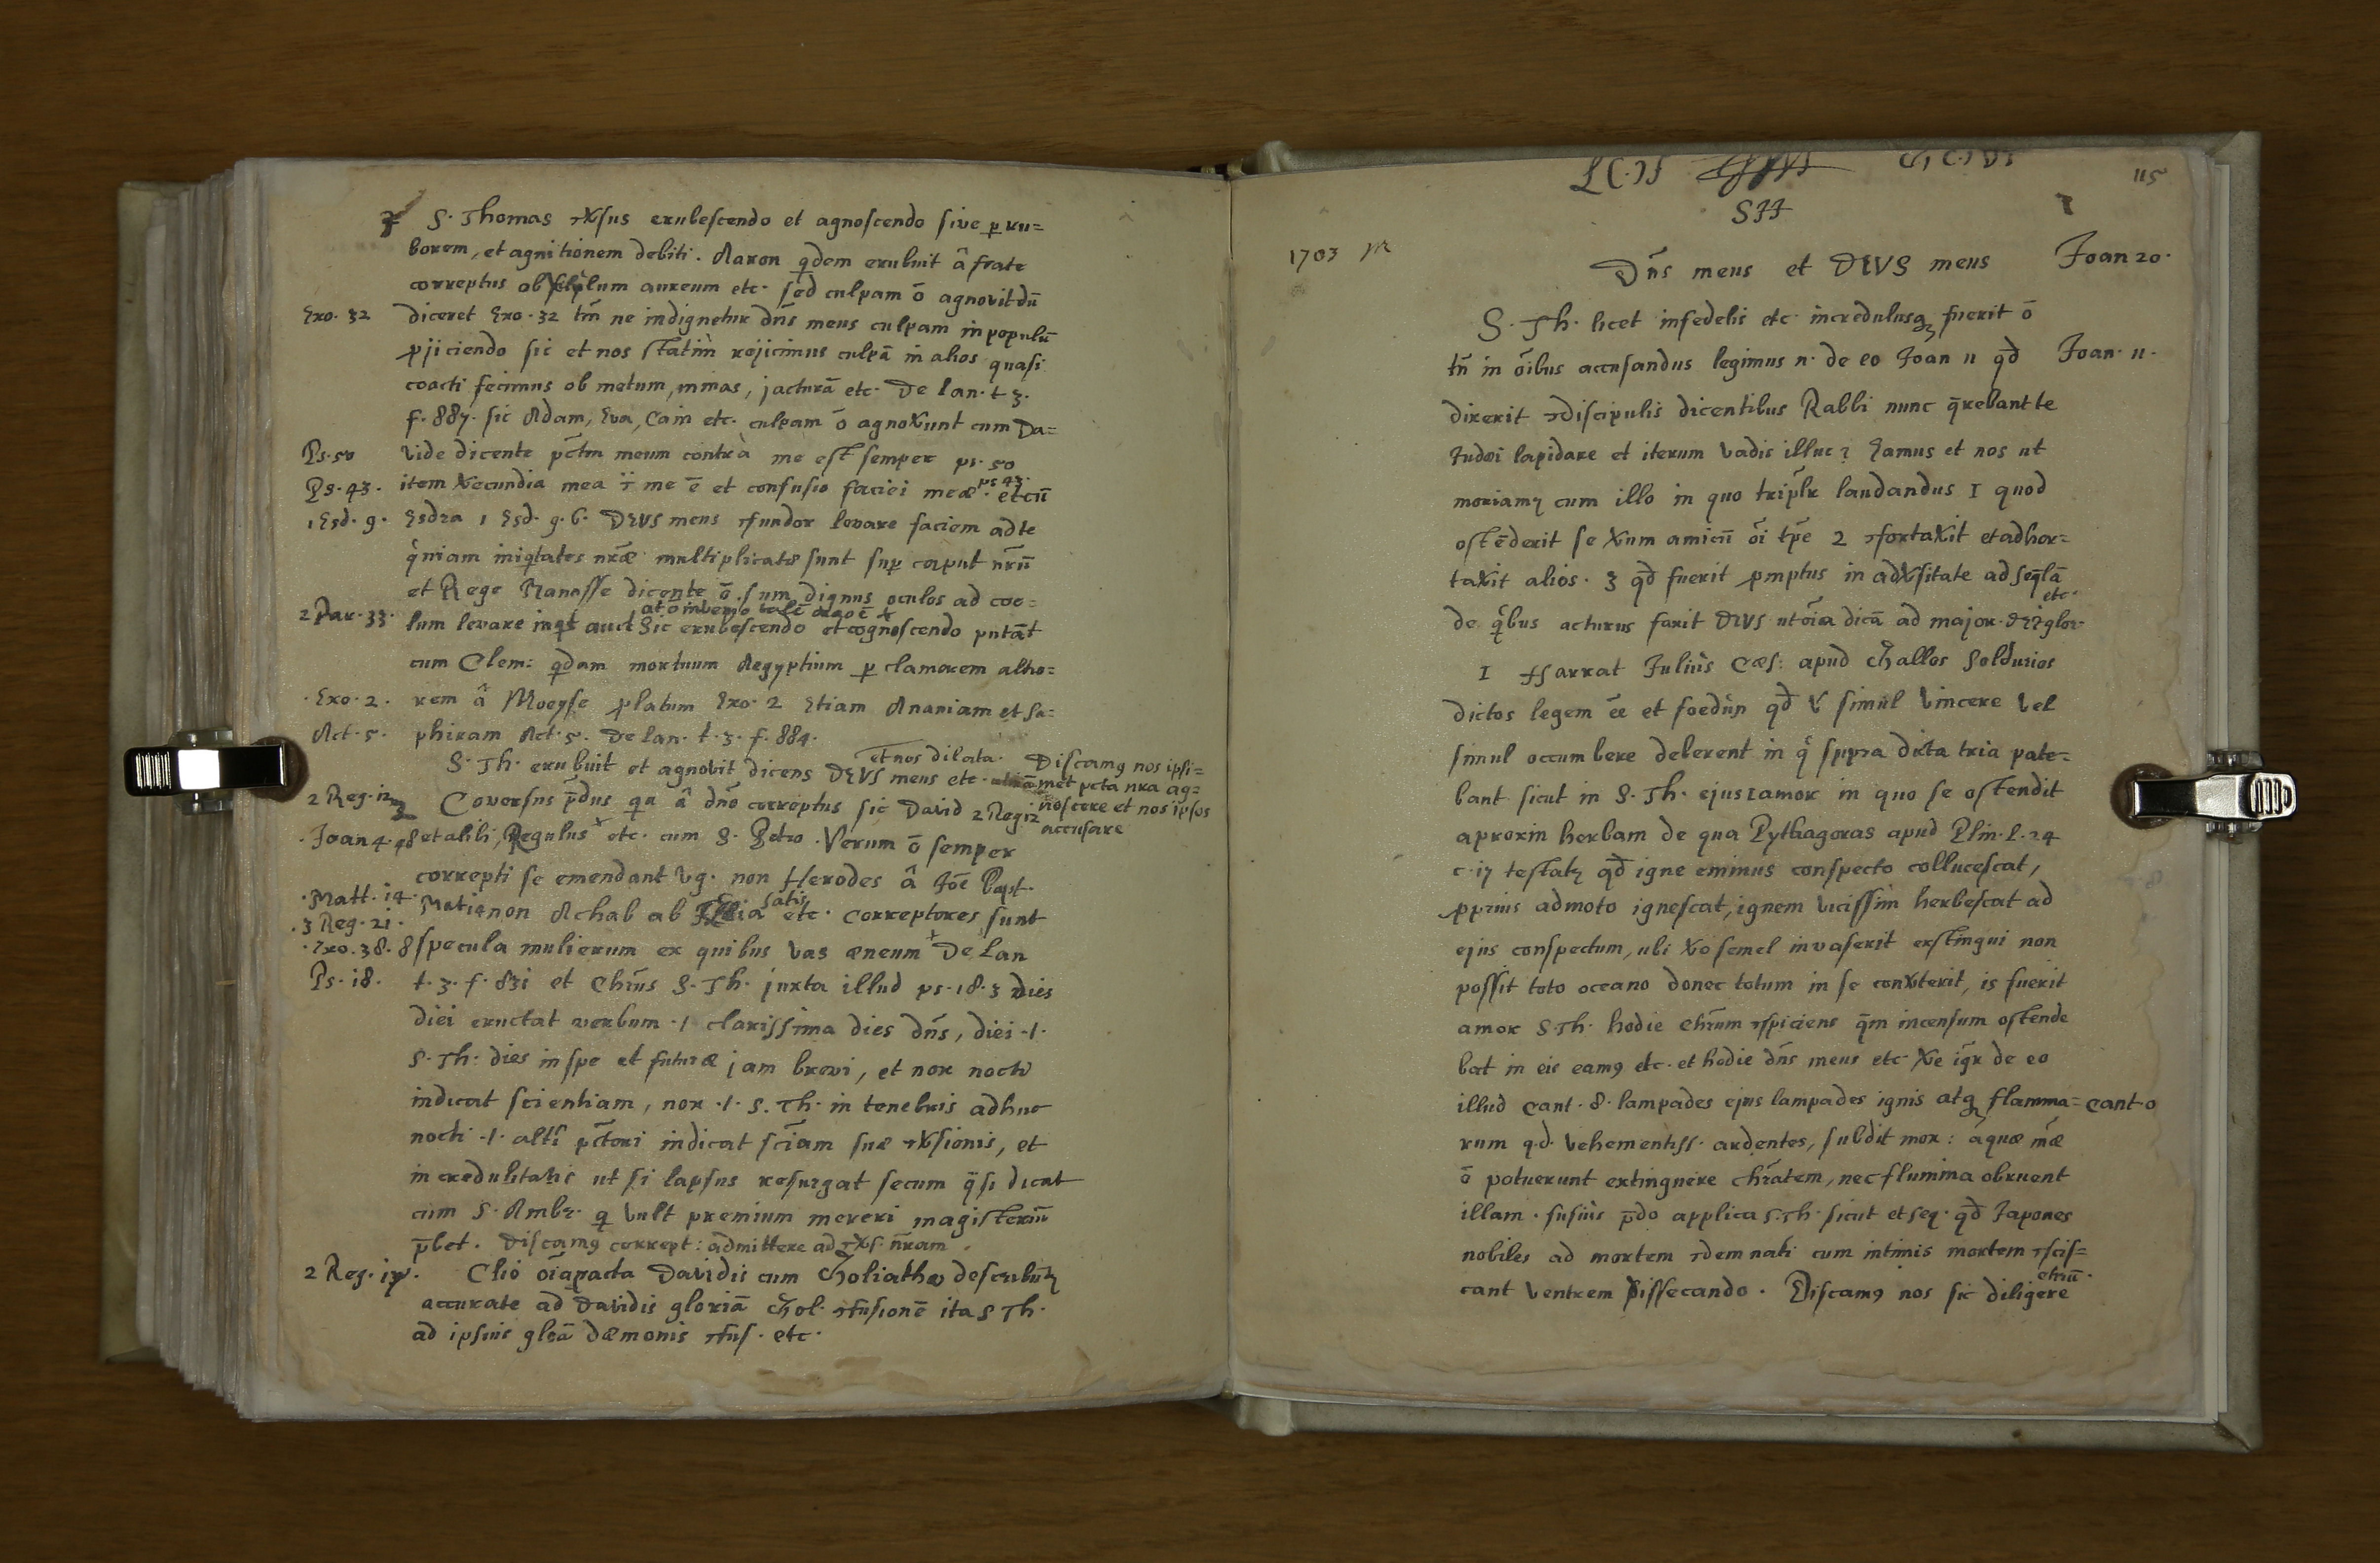 S. Thomas ꝯv̄sus erubescendo et agnoscendo sive ꝑ ru=
borem, et agnitionem debiti. Aaron q̄dem erubuit â frate
correptus ob vitulum aureum etc. sed culpam ō agnovit dū
Exo. 32
diceret Exo. 32 tm̄ ne indignetur dn̄s meus culpam in populū
ꝓjiciendo sic et nos statim rejicimus culpā in alios quasi
coacti fecimus ob metum, minas, jacturā etc. De Lan. t 3.
f. 887. sic Adam, Eva, Cain etc. culpam ō agnoverunt cum Da=
Ps. 50
vide dicente pc̄tm meum contrà me est semper ps. 50
Ps. 43.
item verecundia mea ī me ē et confusio faciei meæ ps 43. et cū
1 Esd. 9.
Esdra 1 Esd. 9. 6. DEVS meus ꝯfundor levare faciem ad te
qũniam iniq̃tates nr̄æ multiplicatæ sunt suꝑ caput nr̄ū
et Rege Manasse dicente ō sum dignus oculos ad coe=
2 Par. 33.
lum levare inq̃t auct Sic erubescendo et cognoscendo putāt
cum Clem: q̄dam mortuum Aegyptium ꝑ clamorem altio=
Exo. 2.
rem â Moeyse ꝓlatum Exo. 2 Etiam Ananiam et Sa=
Act. 5.
phiram Act. 5. De Lan. t. 3. f. 884.
et nos dilata. Discamꝰ nos ipsi=
S. Th. erubuit et agnovit dicens DEVS meus etc. met pcta nra ag=
noscere et nos ipsos
accusare
2 Reg. 12
Coversus p̄dus qa â dn̄o correptus sic David 2 Reg 12
Joan 4. 48
et alibi, Regulus etc. cum S. Petro. Verum ō semper
correpti se emendant vg. non Herodes â Joē Bapt.
Matt. 14.
3 Reg. 21.
Mat 14 non Achab ab Elia satis etc. Correptores sunt
Exo. 38. 8
specula mulierum ex quibus vas æneum De Lan
Ps. 18.
t. 3. f. 831 et Chr̄us S. Th. juxta illud ps. 18. 3 dies
diei eructat verbum .1. clarissima dies dn̄s, diei .1.
S. Th: dies in spe et futuræ jam brevi, et nox nocti
indicat scientiam, nox .1. S. Th. in tenebris adhuc
nocti .1. altī pc̄tori indicat scīam suæ ꝯv̄sionis, et
incredulitatis ut si lapsus resurgat secum q̄si dicat
cum S. Ambr. q vult premium mereri magisteriū
p̄bet. Discamꝰ corrept: admittere ad ꝯvs. nr̄am
2 Reg. 17.
Clio oīa pacta Davidis cum Gholiathæ describūt
accurate ad Davidis gloriā Ghol. ꝯfusionē ita S Th.
ad ipsius glōā dæmonis ꝯfus. etc.
115
SFF
1703
Dn̄s meus et DEVS meus
Joan 20.
S. Th. licet infedelis etc. incredulusqꝫ fuerit ō
tn̄ in ōibus accusandus legimus n. de eo Joan 11 qd̄
Joan. 11.
dixerit ꝯdiscipulis dicentibus Rabbi nunc q̄rebant te
Judæi lapidare et iterum vadis illuc? Eamus et nos ut
moriamꝫ cum illo in quo triplr̄ laudandus 1 quod
ostēderit se verum amicū ōi tp̄e 2 ꝯfortaverit et adhor=
taverit alios. 3 qd̄ fuerit ꝓmptus in adversitate ad seq̄lā
etc.
de q̃bus acturus faxit DEVS ut oīa dicā ad major. DEI glor.
1 Narrat Julius Cæs: apud Ghallos Soldurios
dictos legem ēe et foedus qd̄ v̄ simul vincere vel
simul occumbere deberent in q̃ supra dicta tria pate=
bant sicut in S. Th. ejus 1 amor in quo se ostendit
aproxin herbam de qua Pythagoras apud Plin. l. 24
c. 17 testatꝫ qd̄ igne eminus conspecto collucescat,
ꝓprius admoto ignescat, ignem vicissim herbescat ad
ejus conspectum, ubi vero semel invaserit exstingui non
possit toto oceano donec totum in se converterit, is fuerit
amor S. Th. hodie Chr̄um ꝯspiciens q̄m incensum ostende
bat in eis eamꝰ etc. et hodie dn̄s meus etc. Ve igr̄ de eo
illud Cant. 8. lampades ejus lampades ignis atqꝫ flamma=
Cant. 8
rum q.d. vehementiss. ardentes, subdit mox: aquæ m̄æ
ō potuerunt extinguere chr̄atem, nec flumina obruent
illam. fusiùs p̄do applica S. Th. sicut et seq. qd̄ Japones
nobiles ad mortem ꝯdemnati cum intimis mortem ꝯscis=
cant ventrem dissecando. Discamꝰ nos sic diligere
chrū.